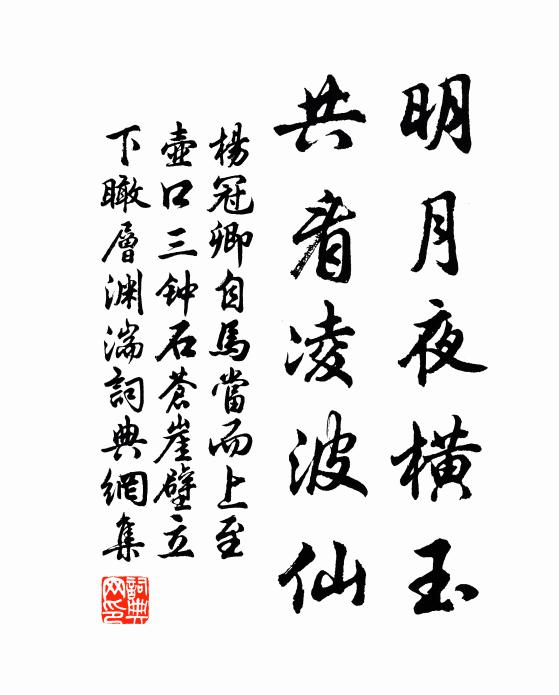 明月夜橫玉
共看凌波仙
楊冠卿自馬當而上至
壺口三钟石蒼崖壁立
下瞰層渊湍詞典網集
詞典網印